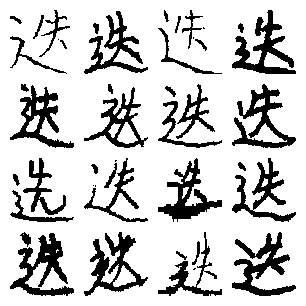 迭迭迭迭
迭迭迭迭
迭迭迭迭
迭迭迭迭